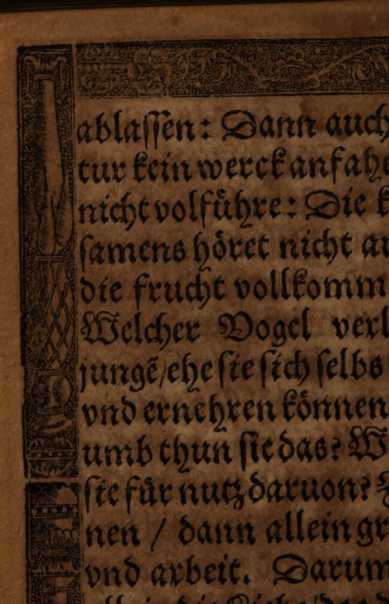 ablassen: Dann auch
tur kein werck anfahe
nicht volführe: Die
samens höret nicht
die frucht vollkomm
Welcher Vogel verl
jungẽ/ ehe sie sich selbs
vnd ernehren können
umb thun sie das? W
sie für nutz daruon?
nen / dann allein gr
vnd arbeit. Darum